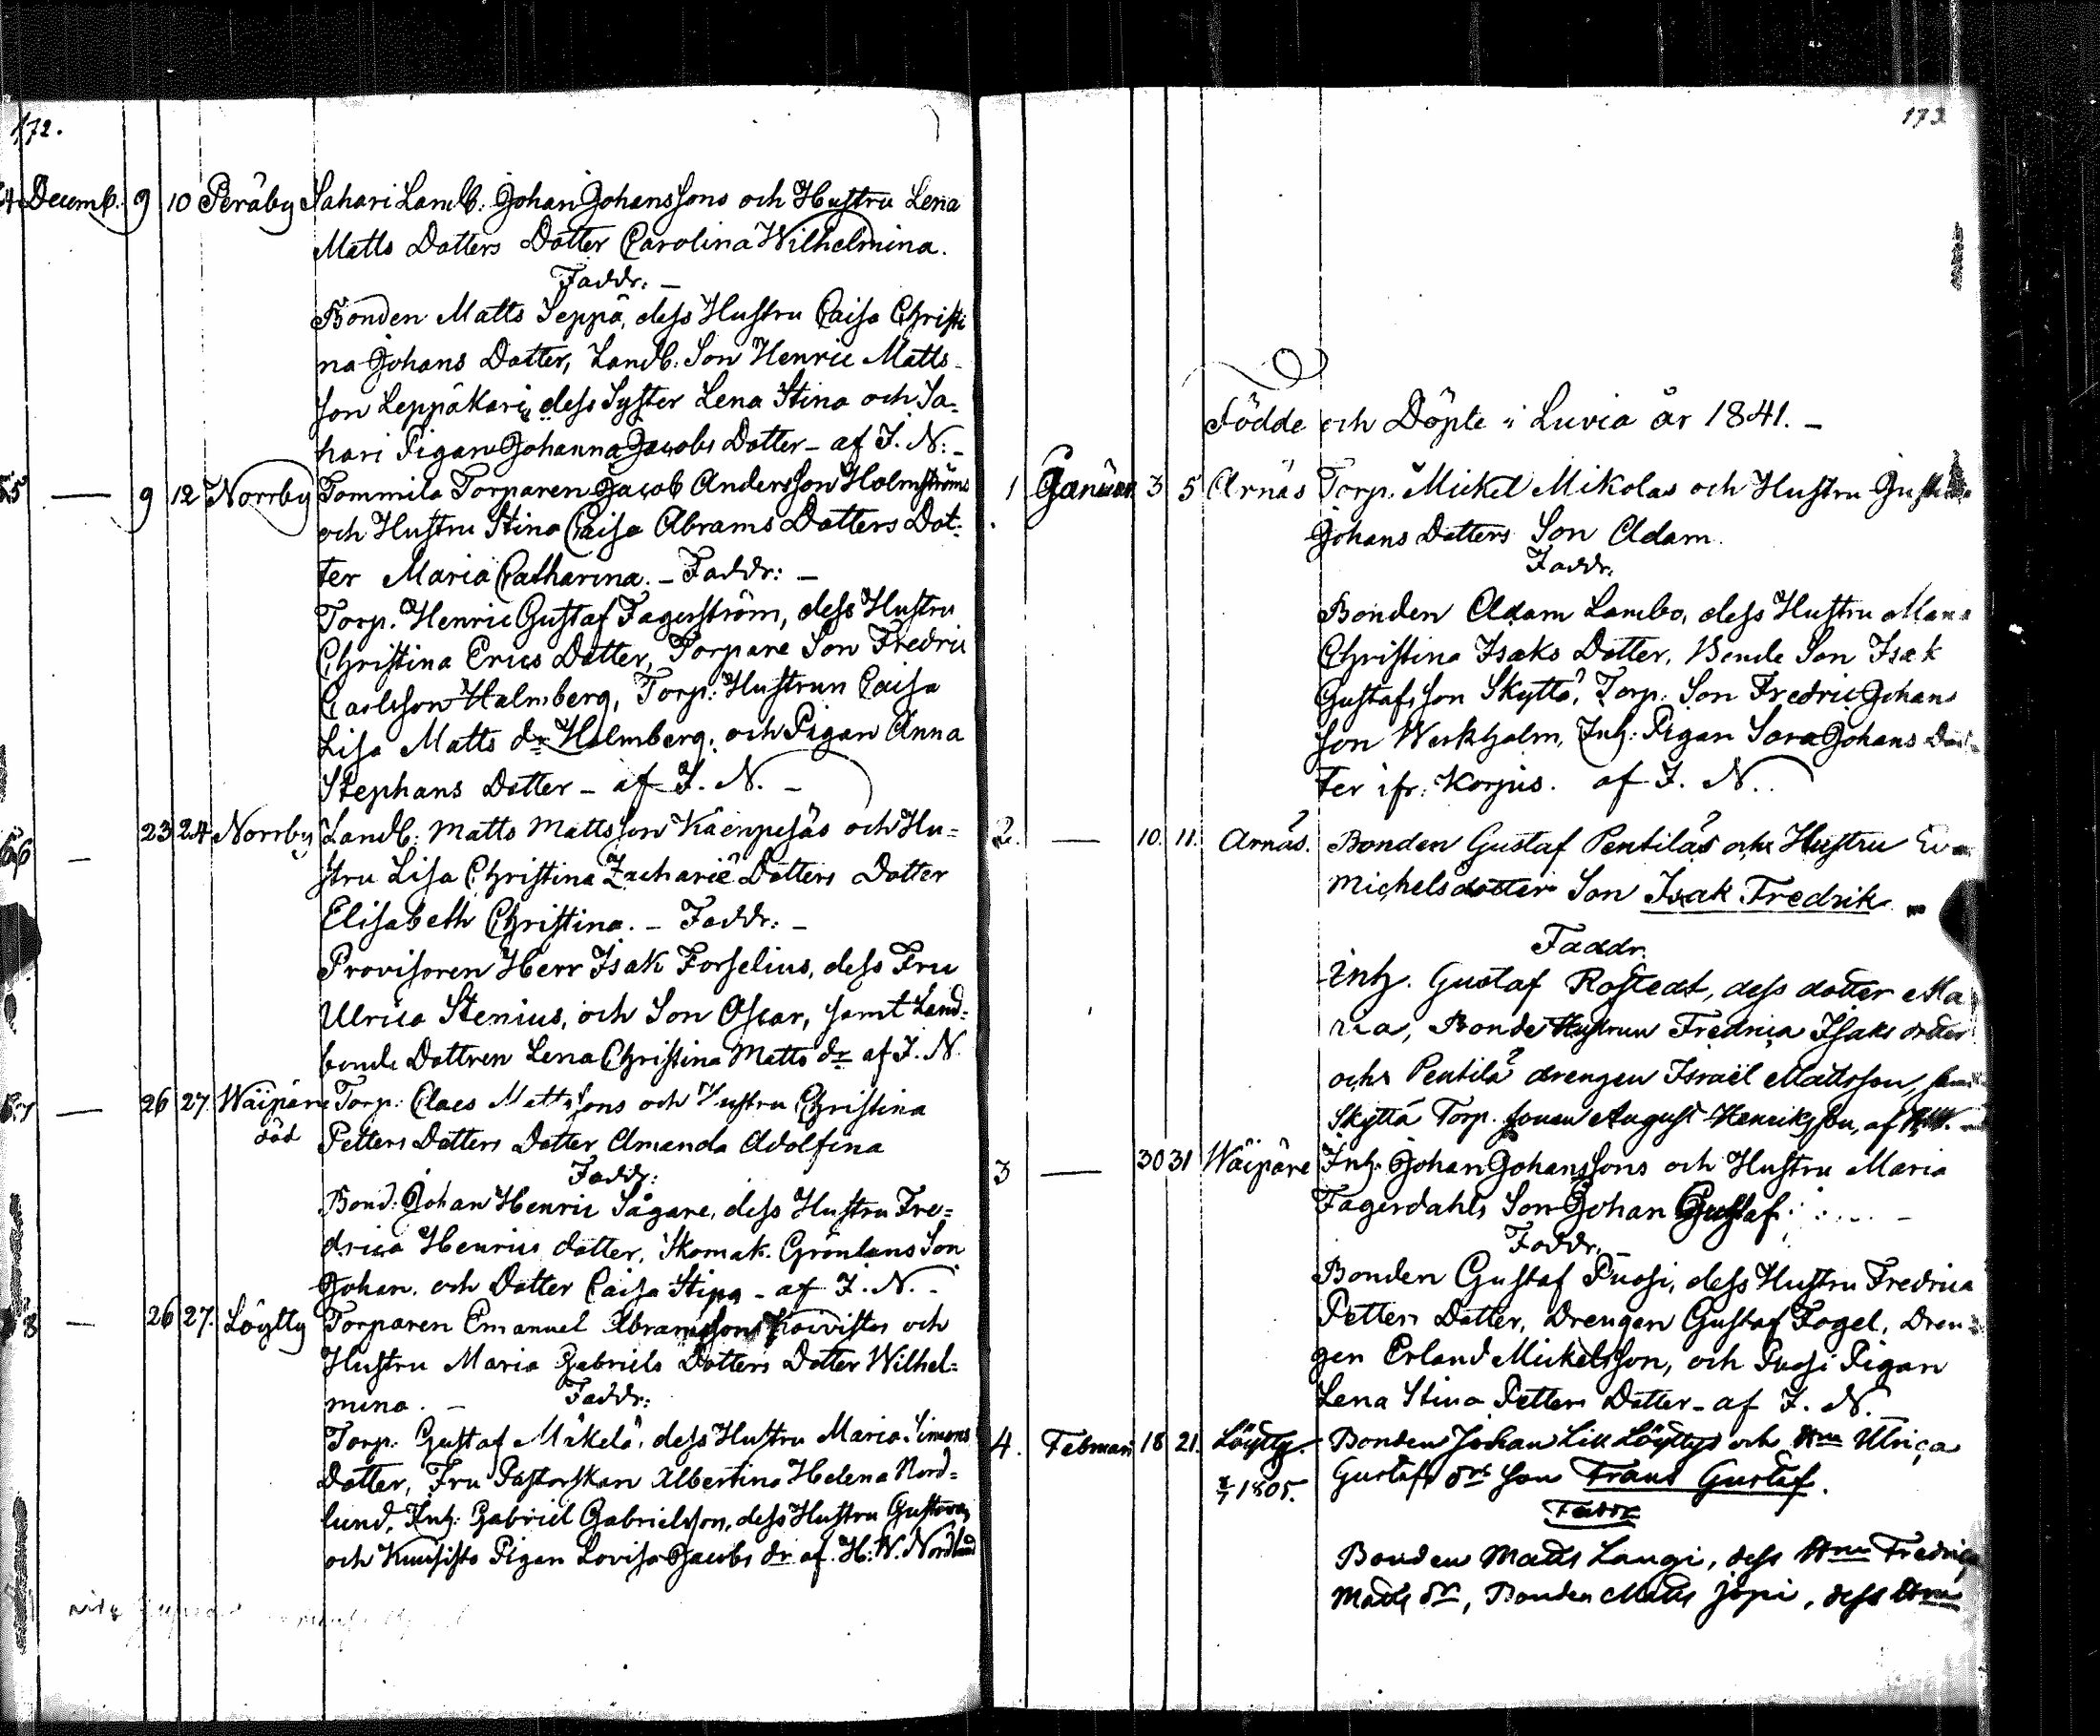 172.
Decemb. 9 10 Peräby Sahari Landb: Johan Johanssons och Hustru Lena
Matts Dotters Dotter Carolina Wilhelmina.
Faddr: —
Bonden Matts Seppä, dess Hustru Caisa Christi
na Johans Dotter, Landb: Son Henric Matts-
son Leppäkari, dess Syster Lena Stina och Sa-
hari Pigan Johanna Jacobs Dotter - af J. N: -
— 9 12 Norrby Tommila Torparen Jacob Andersson Holmströms
och Hustru Stina Caisa Abrams Dotters Dot-
ter Maria Catharina. - Faddr: -
Torp. Henric Gustaf Fagerström, dess Hustru
Christina Erics Dotter, Torpare Son Fredric
Carlsson Halmberg, Torp: Hustrun Caisa
Lisa Matts dr Holmberg, och Pigan Anna
Stephans Dotter - af J. N. -
— 23 24 Norrby Landb: Matts Mattsson Käenpesäs och Hu=
stru Lisa Christina Zacharië Dotters Dotter
Elisabeth Christina. - Faddr: -
Provisoren Herr Isak Forselius, dess Fru
Ulrica Stenius, och Son Oscar, samt Land=
bonde Dottren Lena Christina Matts dr af J. N.
— 26 27. Wäipäre Torp: Claes Mattssons och Hustru Christina
död Petters Dotters Dotter Amanda Adolfina
Faddr:
Bond: Johan Henric Sågare, dess Hustru Fre=
drica Henrics dotter, Skomak. Grönlans Son
Johan, och Dotter Caisa Stina - af J. N. -
— 26 27. Löytty Torparen Emanuel Abramssons Koivistos och
Hustru Maria Gabriels Dotters Dotter Wilhel=
mina. - Faddr:
Torp: Gustaf Mäkelä, dess Hustru Maria Simons
Dotter, Fru Pastorskan Albertina Helena Nord=
lund, Inh: Gabriel Gabrielsson, dess Hustru Gustava,
och Kuusisto Pigan Lovisa Jacobs dr af H: N. Nordlund
173
Födde och Döpte i Luvia år 1841. -
1 Januari 3 5 Arnäs Torp. Mickel Mikolas och Hustru
Johans Dotters Son Adam.
Faddr:
Bonden Adam Lambo, dess Hustru Maria
Christina Isaks Dotter, Bonde Son Isak
Gustafsson Skyttä, Torp: Son Fredric Johans
son Werkholm, Inh: Pigan Sara Johans Dot-
ter ifr: Korpus. af J. N.
2. — 10. 11. Arnäs. Bonden Gustaf Pentiläs och Hustru Eva
Michelsdotters Son Isak Fredrik
Faddr.
Inh. Gustaf Rostedt, dess dotter Ma
ria, Bonde Hustrun Fredrica Isaks dotter
och Pentilä drengen Israël Mattsson,
Skyttä Torp. sonen August Henriksson, af
3 — 30 31 Wäipäre Inh: Johan Johanssons och Hustru Maria
Fagerdahls Son Johan Gustaf
Faddr. -
Bonden Gustaf Puosi, dess Hustru Fredrica
Petters Dotter, Drengen Gustaf Fogel, Dren=
gen Erland Mickelsson, och Puosi Pigan
Lena Stina Petters Dotter - af J. N.
4. Februari 18 21. Löytty. Bonden Johan Lill Löyttys och Hru Ulrica
1805. Gustafs drs son Frans Gustaf.
Faddr
Bonden Matts Langi, dess Hru Fredrica
Matts dr, Bonden Matts Jopi, dess Hru